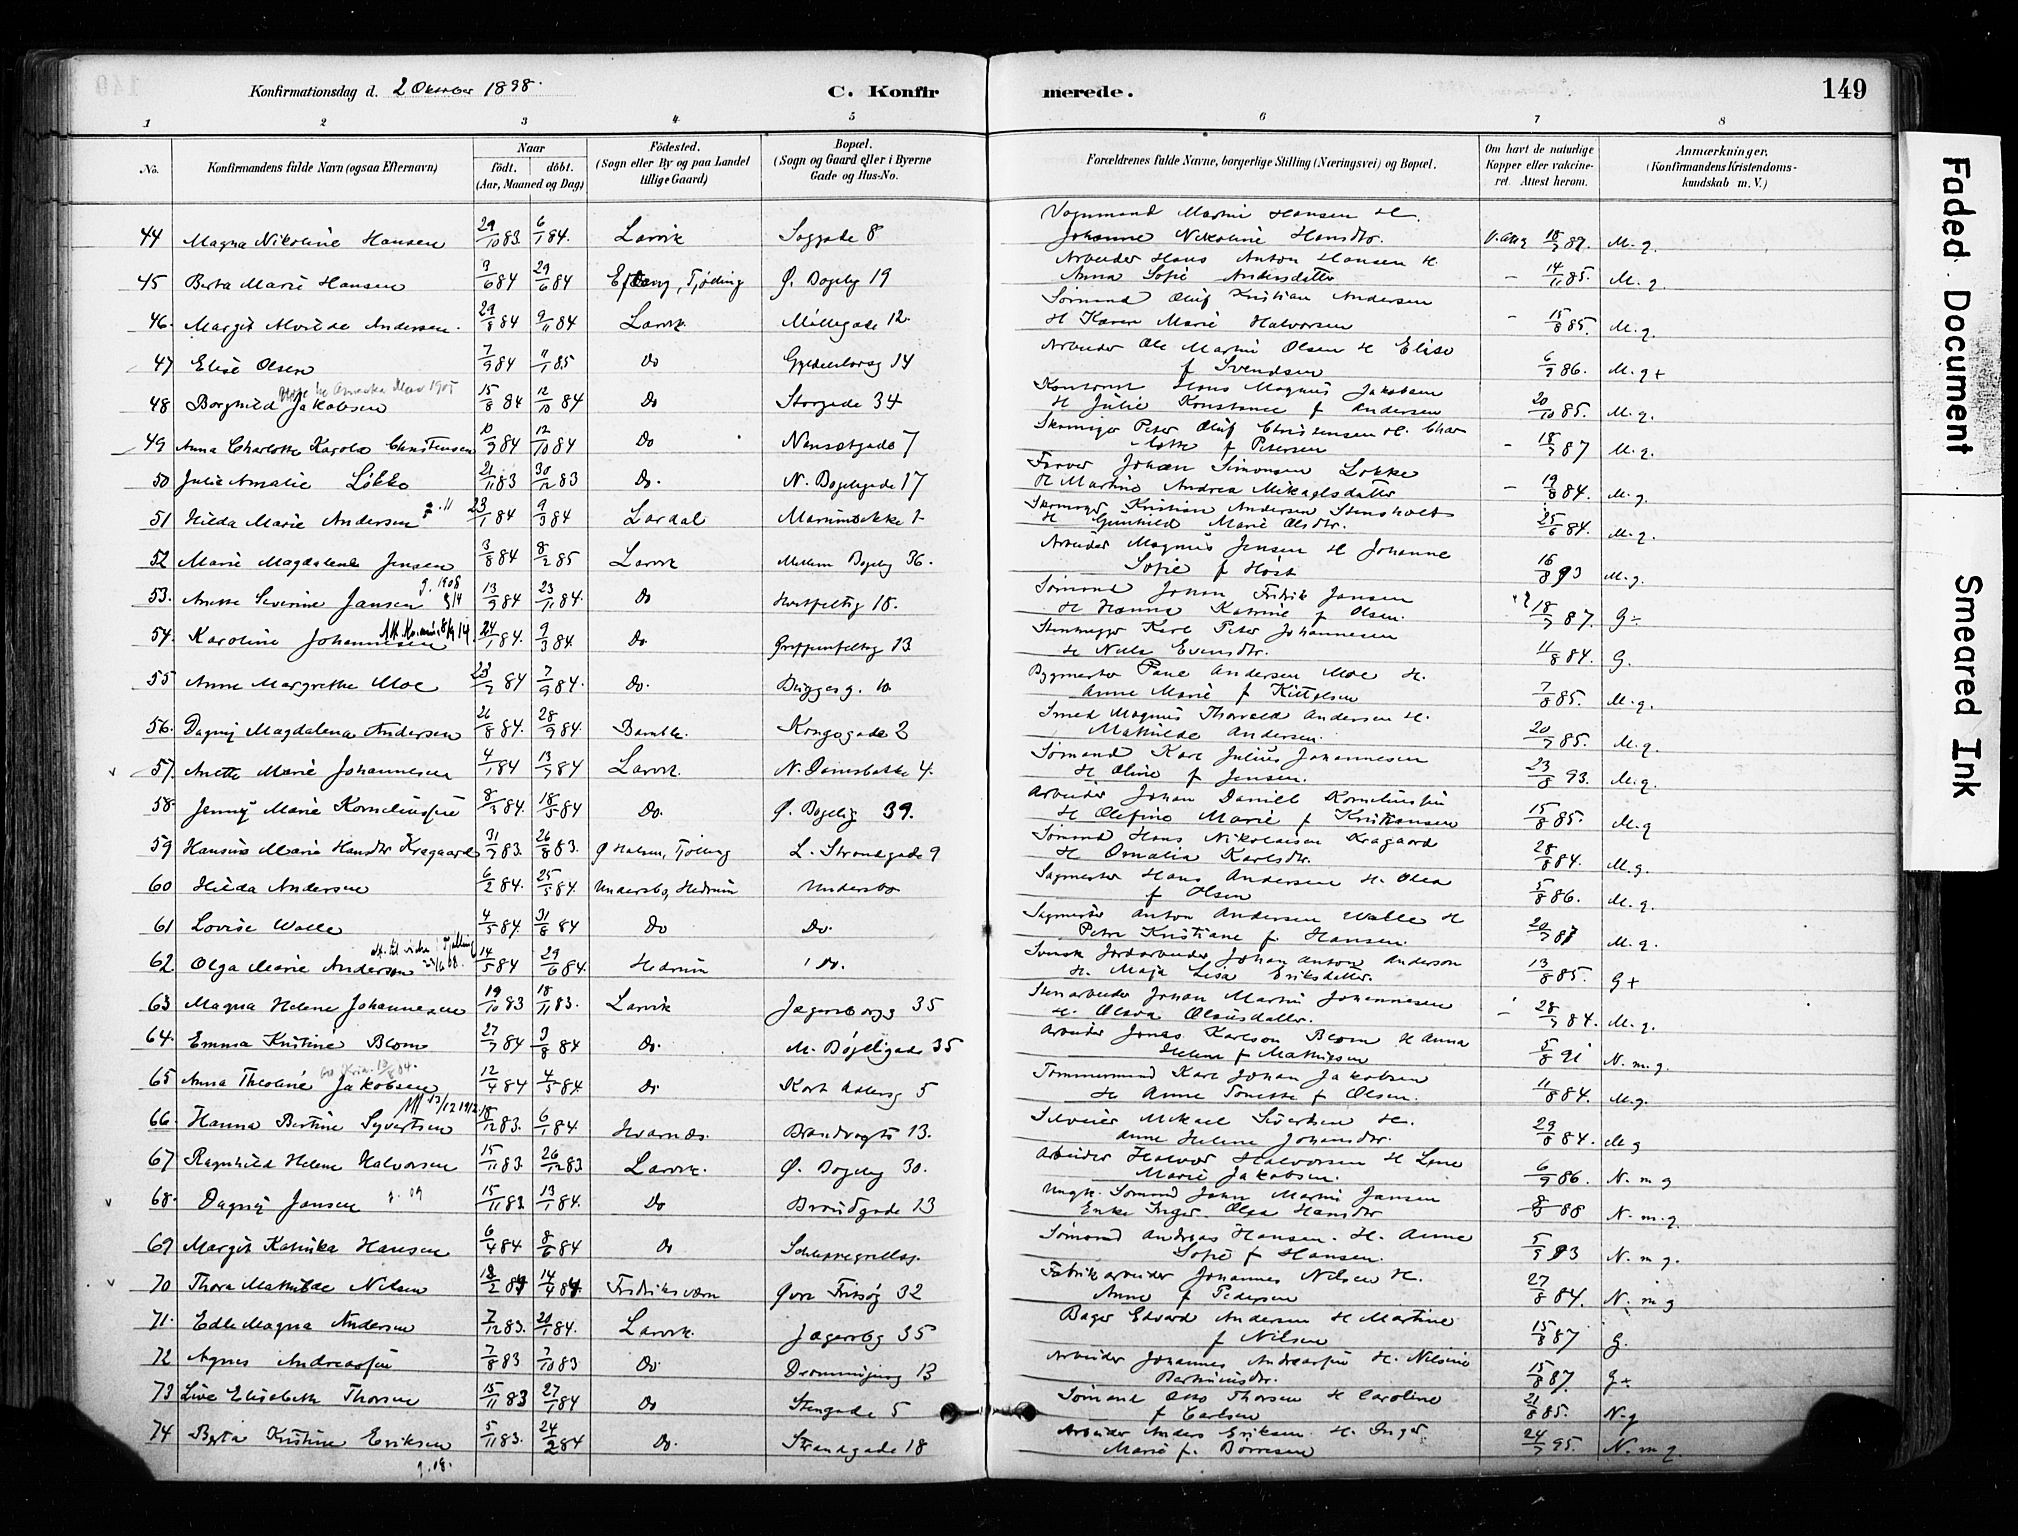 Konfirmationsdag d. 2 Oktober 1898. C. Konfirmerede. 149
1 2 3 4 5 6 7 8
No. Konfirmandens fulde Navn (ogsaa Efternavn) Naar født. døbt. (Aar, Maaned og Dag) Fødested. (Sogn eller By og paa Landet tillige Gaard) Bopæl. (Sogn og Gaard eller i Byerne Gade og Hus-No. Forældrenes fulde Navne, borgerlige Stilling (Næringsvei) og Bopæl. Om havt de naturlige Kopper eller vakcineret. Attest herom. Anmærkninger, (Konfirmandens Kristendomskundskab m. V.)
44 Magna Nikoline Hansen 29/10 83. 6/1 84. Larvik 8 Vognmand Martin Hansen H. Johanne Nikoline Hansdtr. M. g.
45 Berta Marie Hansen 9/6 84 29/6 84 Tjødling Ø. Bogelg 19 Arbeider Hans Anton Hansen H. Anna Sofie Andersdatter – 14/11 85. M. g.
46. Margit Alvilde Andersen. 29/8 84 9/11 84 Larvik. Møllegade 12. Sømand Oluf Kristian Andersen H Karen Marie Halvorsen – 15/8 85. M. g.
47 Elise Olsen 7/9 84 85 Do 14 Arbeider Ole Martin Olsen H Elise f Svendsen 6/9 86. M. g +
48 Borghild Jakobsen 15/8 84 12/10 84 Do Storgade 34 Kontorist Hans Magnus Jakobsen H Julie Konstance f Andersen 20/10 85. M. g.
49 Anna Charlotte Karola Christensen 10/9 84 12/10 84 Do Nansetgade 7 Peter Oluf Christensen H. Charlotte f Petersen – 18/9 87 M. g.
50 Julie Amalie Løkke 21/11 83 30/12 83 Do. N. Bøgelgade 17 Farver Johan Simonsen Løkke H Martine Andrea Mikaelsdatter – 19/8 84. M. g.
51 Hilda Marie Andersen 23/1 84 9/3 84 Lardal Kristian Andersen Stensholt H Gunhild Marie Olsdtr. 25/6 84. M. g.
52 Marie Magdalene Jensen 3/8 84 8/2 85 Larvik Mellem Bøgelg 36. Arbeider Magnus Jensen H Johanne Sofie f Høst 16/8 93 M. g.
53. Anette Severine Jansen g. 1908 13/9 84 23/11 84. Do 18. Sømand Johan Fridrik Jansen H Hanna Katrine f Olsen. 18/9 87. G÷
54. Karoline Johannesen 24/1 84. 9/3 84. Do. Griffenfeltsg 13 Stenhugger Karl Peter Johannesen H Nula Evensdtr. 11/8 84. G.
55 Anne Margrethe Moe 23/7 84 7/9 84. Do. Bryggeg. 10 Bygmester Andersen Moe H. Anne Marie f Kittilsen 7/8 85. M. g.
56. Dagny Magdalena Andersen 26/8 84. 28/9 84. Bamble. Kongegade 2 Smed Magnus Thorvald Andersen H. Mathilde Andersen. 20/9 85. M. g.
57. Anette Marie Johannesen 4/1 84 13/7 84 Larvik. 4. Sømand Karl Julius Johannesen H Oline f Jensen. 23/8 93. M. g.
58 Jenny Marie Korneliussen 8/3 84. 18/5 84 Do. Ø. Bogelg 39. Arbeider Johan Daniel Korneliussen H Olefine Marie f Kristiansen 15/8 85. M. g
59 Hansine Marie Hansdtr Kragaard 31/7 83. 26/8 83. Ø Halsen, Tjølling L. Strandgade 9 Sømand Hans Nikolaisen Kragaard H Omalia Karlsdtr. 28/8 84. M. g.
60 Hilda Andersen 6/2 84. 25/5 84 Undersbo, Hedrum Undersbo Sagmester Hans Andersen H. Olea f Olsen 5/8 86. M. g.
61 Lovise Walle 4/5 84 31/8 84 Do Do. Sagmester Anton Andersen Walle H Petra Kristiane f. Hansen. M. g.
62. Olga Marie Anderson 14/5 84 29/6 84. Hedrum Do. Svensk Jordarbeider Johan Anton Anderson H. Maja Lisa Eriksdatter 13/8 85. G +
63 Magna Helene Johannesen 19/10 83 18/11 83. Larvik Jægersborgg 35 Stenarbeider Johan Martin Johannesen H. Olava Olausdatter – 28/9 84. M. g.
64. Emma Kristine Blom 27/7 84 3/8 84 Do. M. Bøgelgade 35 Arbeider Jonas Karlson Blom H Anna Helene f Mathiesen 5/8 91 N. m. g.
65 Anna Theoline Jakobsen 12/4 84 4/5 84 Do. Kort Adlersg 5 Tømmermand Karl Johan Jakobsen H Anne Tonette f Olsen. 11/8 84. M. g.
66. Hanna Bertine Syvertsen 18/12 83. 6/1 84 Hvarnes. Brandvagtg 13. Mikael Sivertsen H. Anne Helene Johansdtr. 29/8 84. M g
67 Ragnhild Helene Halvorsen 15/11 83 26/12 83 Larvik. Ø. Bogelg 30. Arbeider Halvor Halvorsen H Lene Marie Jakobsen. 6/9 86. N. m g
68. Dagny Jansen g. 09 15/11 83 13/1 84. Do 13 Ungk. Sømand John Martin Jansen Enke Inger Olea Hansdtr 88 N. m. g.
69 Margit Katinka Hansen 6/4 84 8/6 84 Do Schleppegrellsg. Sømand Andreas Hansen. H. Anne Sofie f Hansen. 5/9 93 N. m. g.
70 Thora Mathilde Nilsen 84 14/4 84. Fredriksværn Øvre Fritsøg 32 Fabrikarbeider Johannes Nilsen H. Anne f Pedersen 27/8 84. N. m g
71. Edle Magna Andersen 7/12 83. 20/1 84. Larvik. Jægersbg 35 Bager Edvard Andersen H Martine f Nilsen 15/8 87 G.
72 Agnes Andreassen 7/8 83 7/10 83 Do. Dronningensg 13 Arbeider Johannes Andreassen H. Nilsine 15/8 87. G÷
73 Live Elisabeth Thorsen 15/11 83 27/1 84 Do Stengade 5 Sømand Otto Thorsen H Caroline f Carlsen 21/8 85. N. g
74 Berta Kristine Eriksen 5/11 83. 24/2 84 Do. Strandgade 18 Arbeider Anders Eriksen. H. Inger Marie f. Børresen 24/7 95. N. m. g.
g. 08.
Faded Document
Smeared Ink